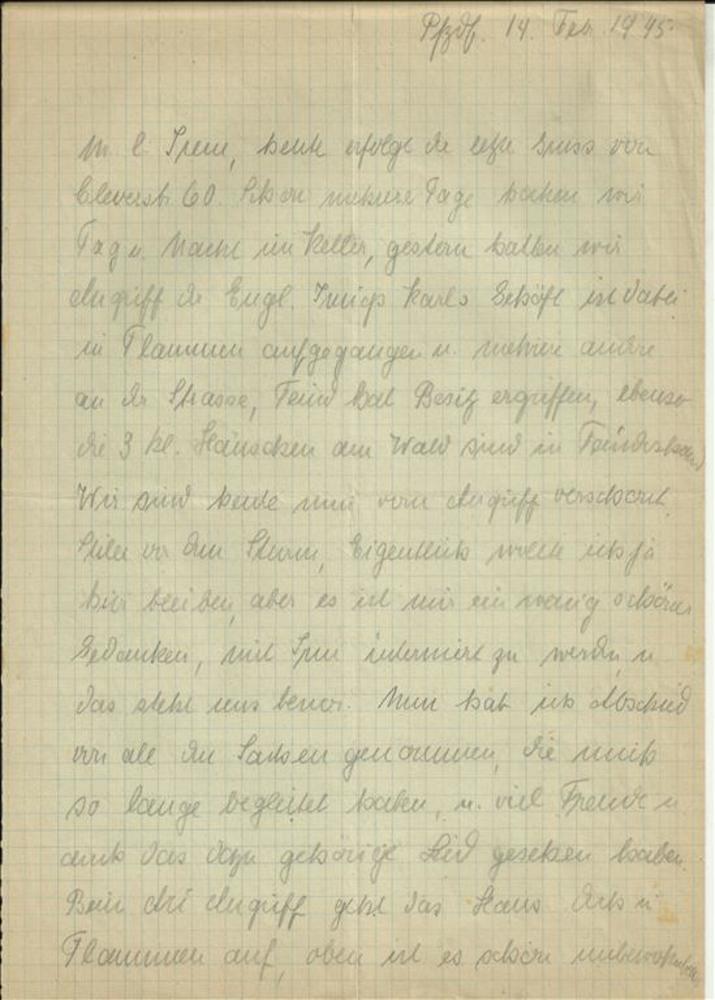 Pfzdf. 14. Feb 1945.
M. l. Irene, heute erfolgt der letzte Gruss von
Cleverstr 60. Schon mehrere Tage hocken wir
Tag u. Nacht im Keller, gestern hatten wir
Angriff der Engl. Karls Gehöft ist dabei
in Flammen aufgegangen u. mehrere andre
an der Strasse, Feind hat Besitz ergriffen, ebenso
die 3 kl. Häuschen am Wald sind in Feindeshand
Wir sind heute nun vom Angriff verschont.
Stille vor dem Sturm, Eigentlich wollte ich ja
hier bleiben, aber es ist mir ein wenig schöner
Gedanken, mit interniert zu werden u
das steht uns bevor. Nun hab ich Abschied
von all den Sachen genommen, die mich
so lange begleitet haben, u. viel Freude u
auch das dazu gehörige Leid gesehen haben.
Beim Angriff geht das Haus doch i
Flammen auf, oben ist es schon unbewohnbar